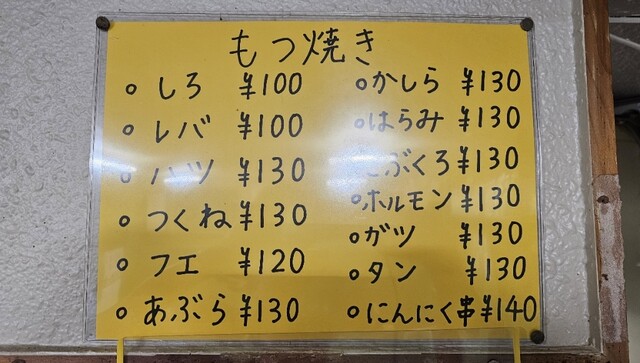 もつ焼き
○ しろ ¥100
○ レバ ¥100
○ ハツ ¥130
○ つくね ¥130
○ フエ ¥120
○ あぶら ¥130
○ かしら ¥130
○ はらみ ¥130
○ こぶくろ ¥130
○ ホルモン ¥130
○ ガツ ¥130
○ タン ¥130
○ にんにく串 ¥140